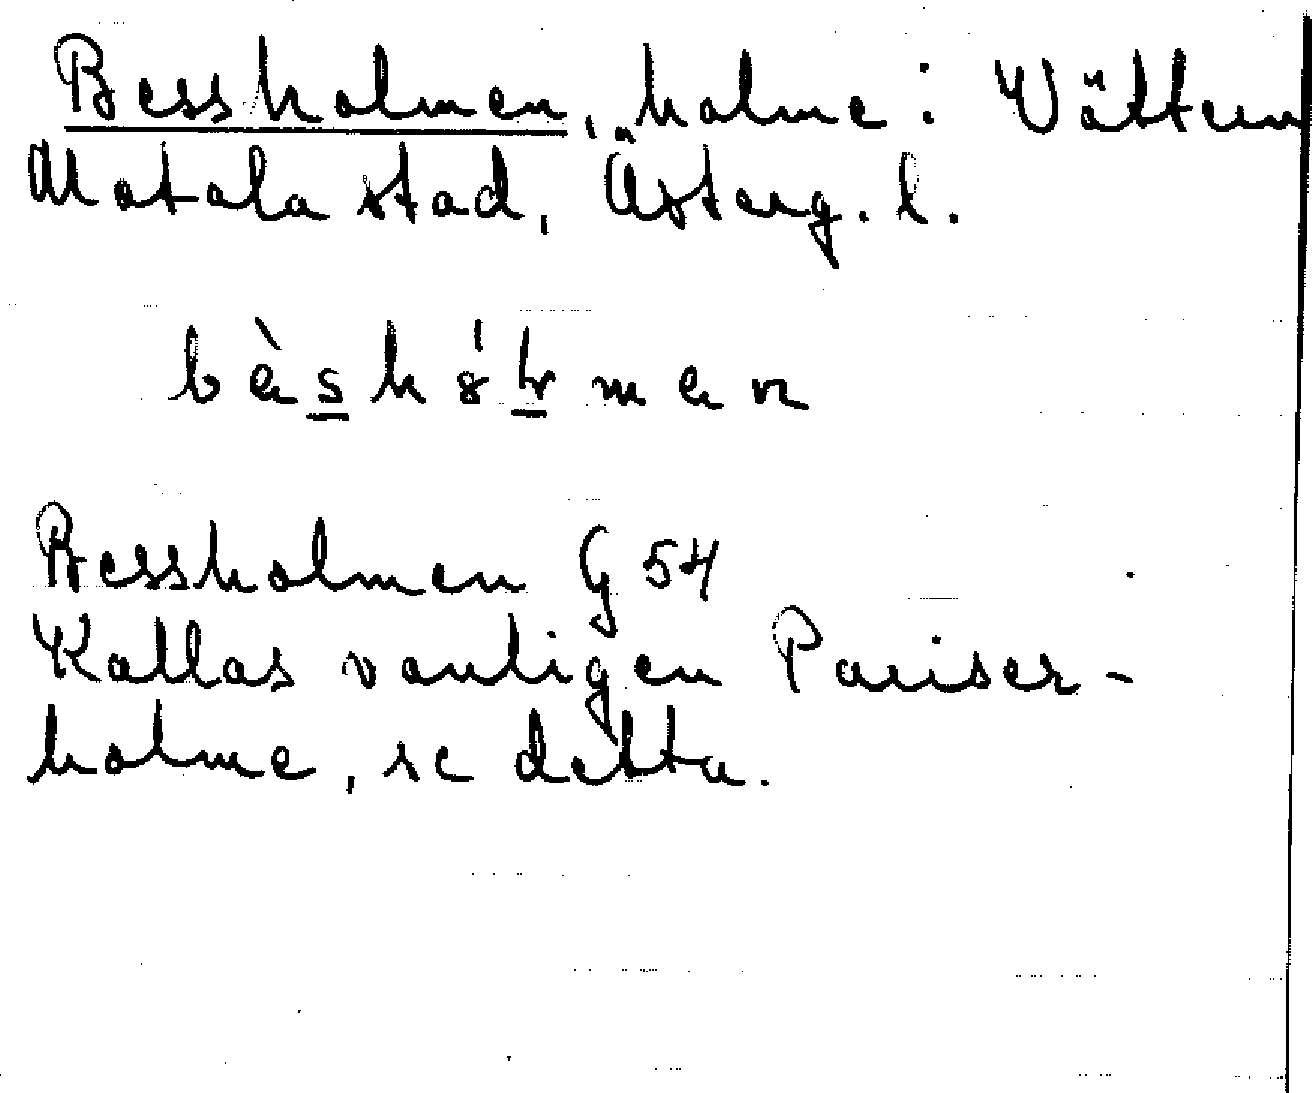 Bessholmen, holme i Vättern
Motala stad, Österg. l.
Bessholmen G 54
Kallas vanligen Pariser-
holme, se detta.